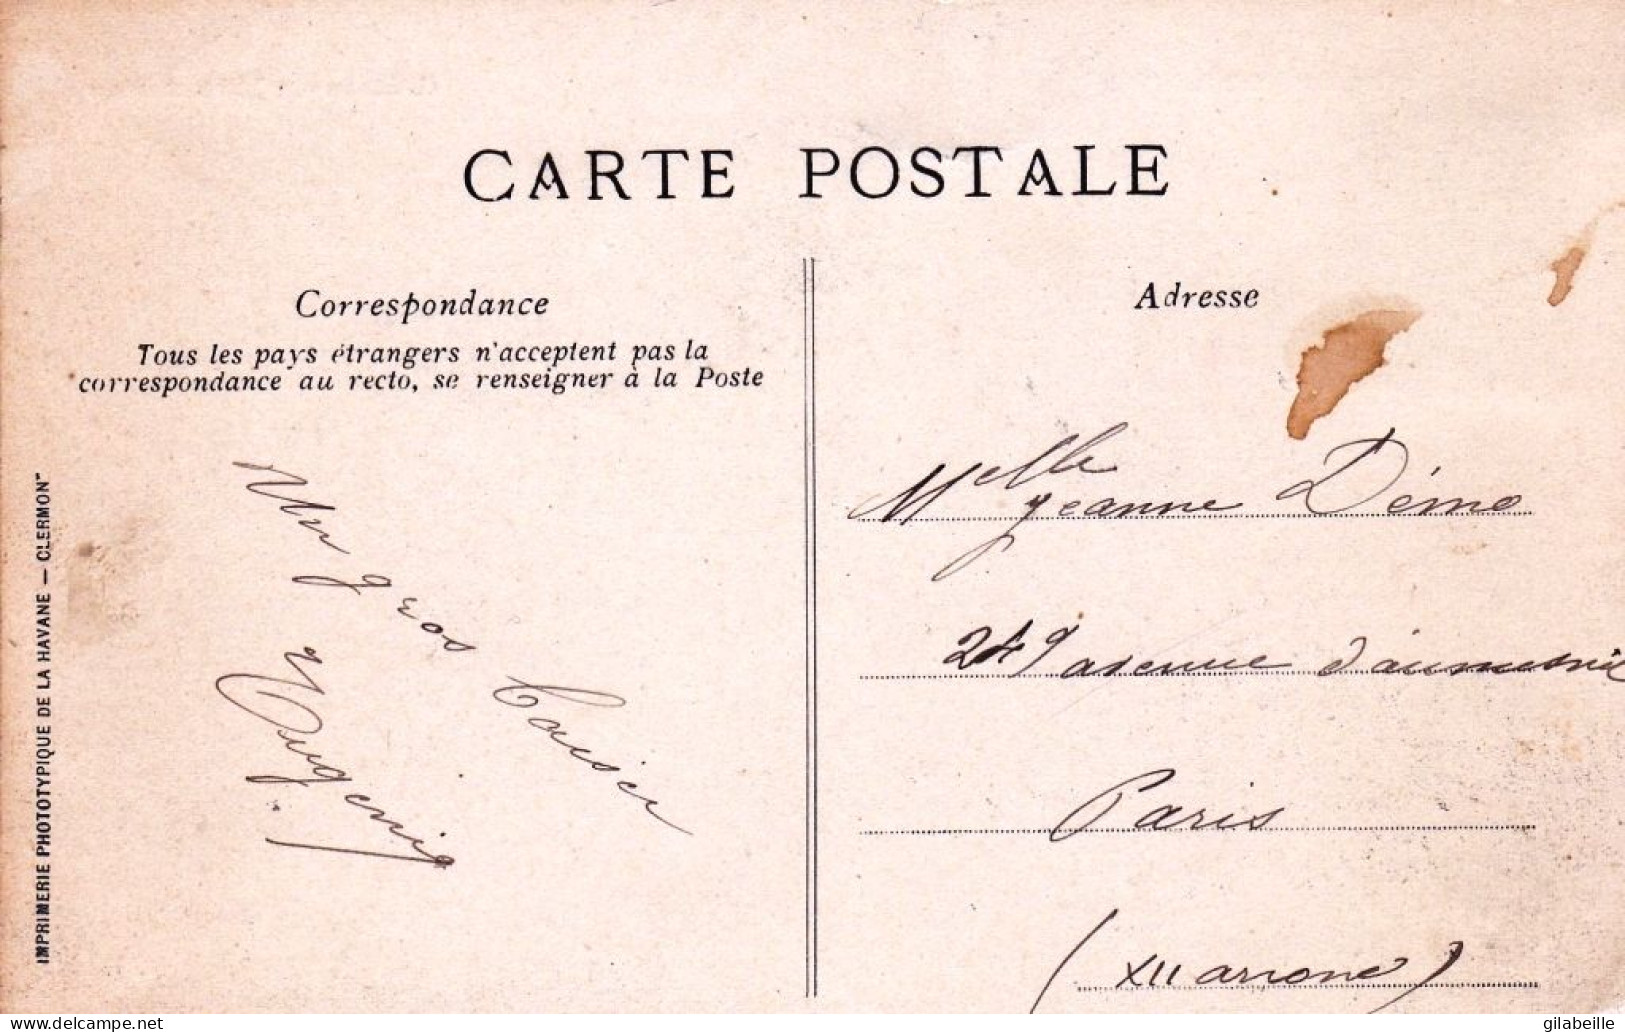 CARTE POSTALE
Correspondance
Tous les pays étrangers n'acceptent pas la
correspondance au recto, se renseigner à la Poste
Un gros baiser
Eugenie
IMPRIMERIE PHOTOTYPIQUE DE LA HAVANE — CLERMONT
Adresse
Melle Jeanne Démo
249 avenue Daumesnil
Paris
(XII arrond)
delcampe.net
gilabeille